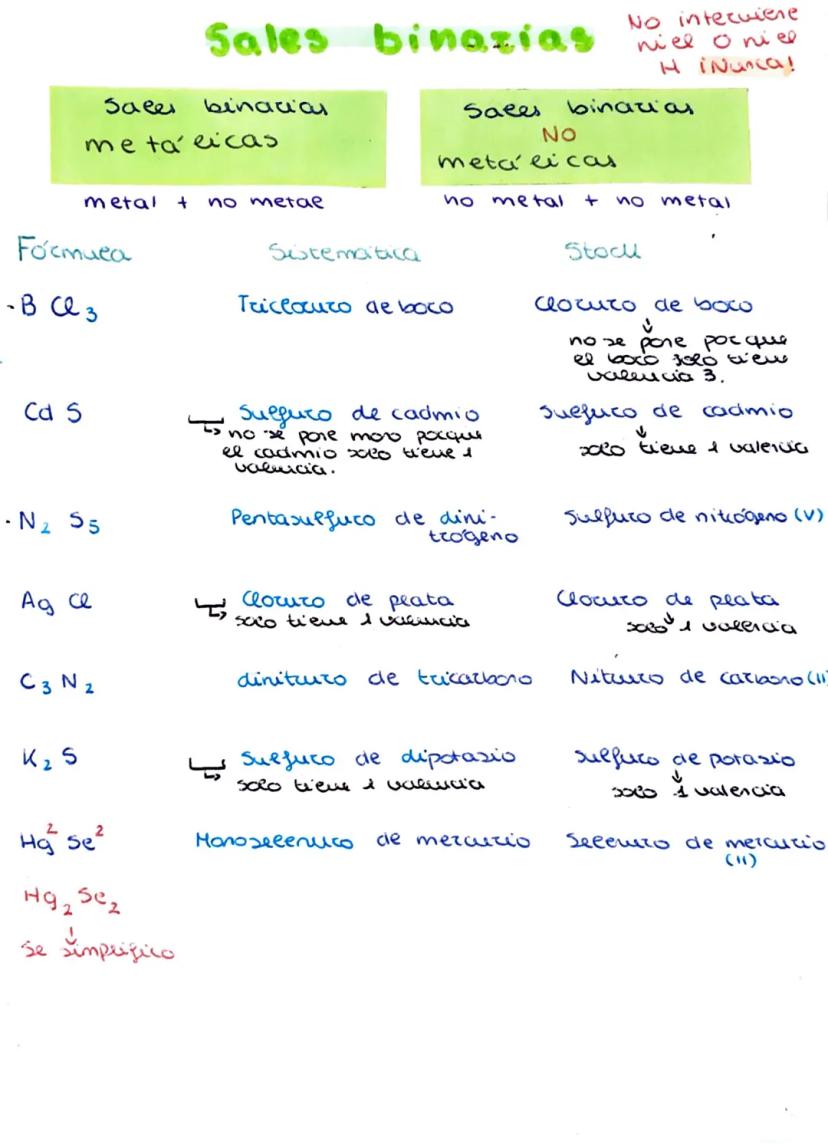 Sales binarias
No interviene
ni el O ni el
H ¡Nunca!
Sales binarias
metálicas
Sales binarias
NO
metálicas
metal + no metal
no metal + no metal
Fórmula Sistemática Stock
·B Cl3 Tricloruro de boro Cloruro de boro
no se pone porque
el boro solo tiene
valencia 3.
Cd S Sulfuro de cadmio Sulfuro de cadmio
no se pone mono porque
el cadmio solo tiene 1
valencia.
solo tiene 1 valencia
·N2 S5 Pentasulfuro de dini- Sulfuro de nitrógeno (V)
trógeno
Ag Cl Cloruro de plata Cloruro de plata
solo tiene 1 valencia solo 1 valencia
C3 N2 dinitruro de tricarbono Nitruro de carbono (II)
K2 S Sulfuro de dipotasio Sulfuro de potasio
solo tiene 1 valencia solo 1 valencia
Hg² Se² Monoselenuro de mercurio Selenuro de mercurio
(II)
Hg2 Se2
se simplifica